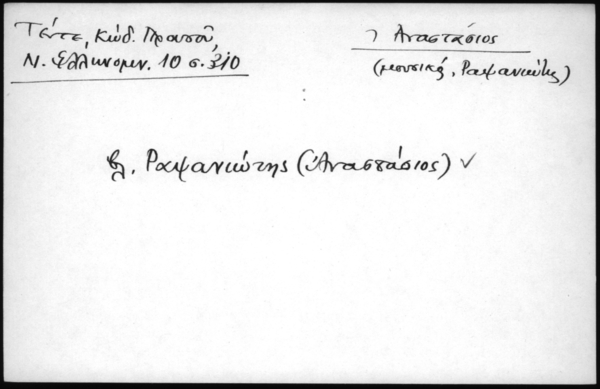 Τέντε, Κώδ. Πρωτοῦ,
Ν. Ἑλληνομν. 10 σ. 310
Ἀναστάσιος
(μουσικός, Ραψανιώτης)
βλ. Ραψανιώτης (Ἀναστάσιος) ✓